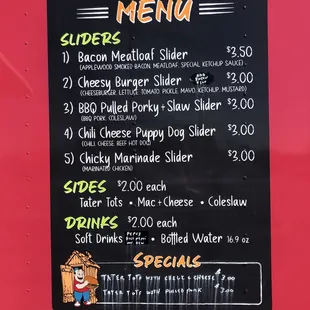 MENU
SLIDERS
1) Bacon Meatloaf Slider $3.50
(APPLEWOOD SMOKED BACON, MEATLOAF, SPECIAL KETCHUP SAUCE)
2) Cheesy Burger Slider $3.00
(CHEESEBURGER, LETTUCE, TOMATO, PICKLE, MAYO, KETCHUP, MUSTARD)
3) BBQ Pulled Porky + Slaw Slider $3.00
(BBQ PORK, COLESLAW)
4) Chili Cheese Puppy Dog Slider $3.00
(CHILI, CHEESE, BEEF HOT DOG)
5) Chicky Marinade Slider $3.00
(MARINATED CHICKEN)
SIDES $2.00 each
Tater Tots • Mac + Cheese • Coleslaw
DRINKS $2.00 each
Soft Drinks • Bottled Water 16.9 oz
SPECIALS
TATER TOTS WITH CHILI & CHEESE $3.00
TATER TOTS WITH PULLED PORK $4.00